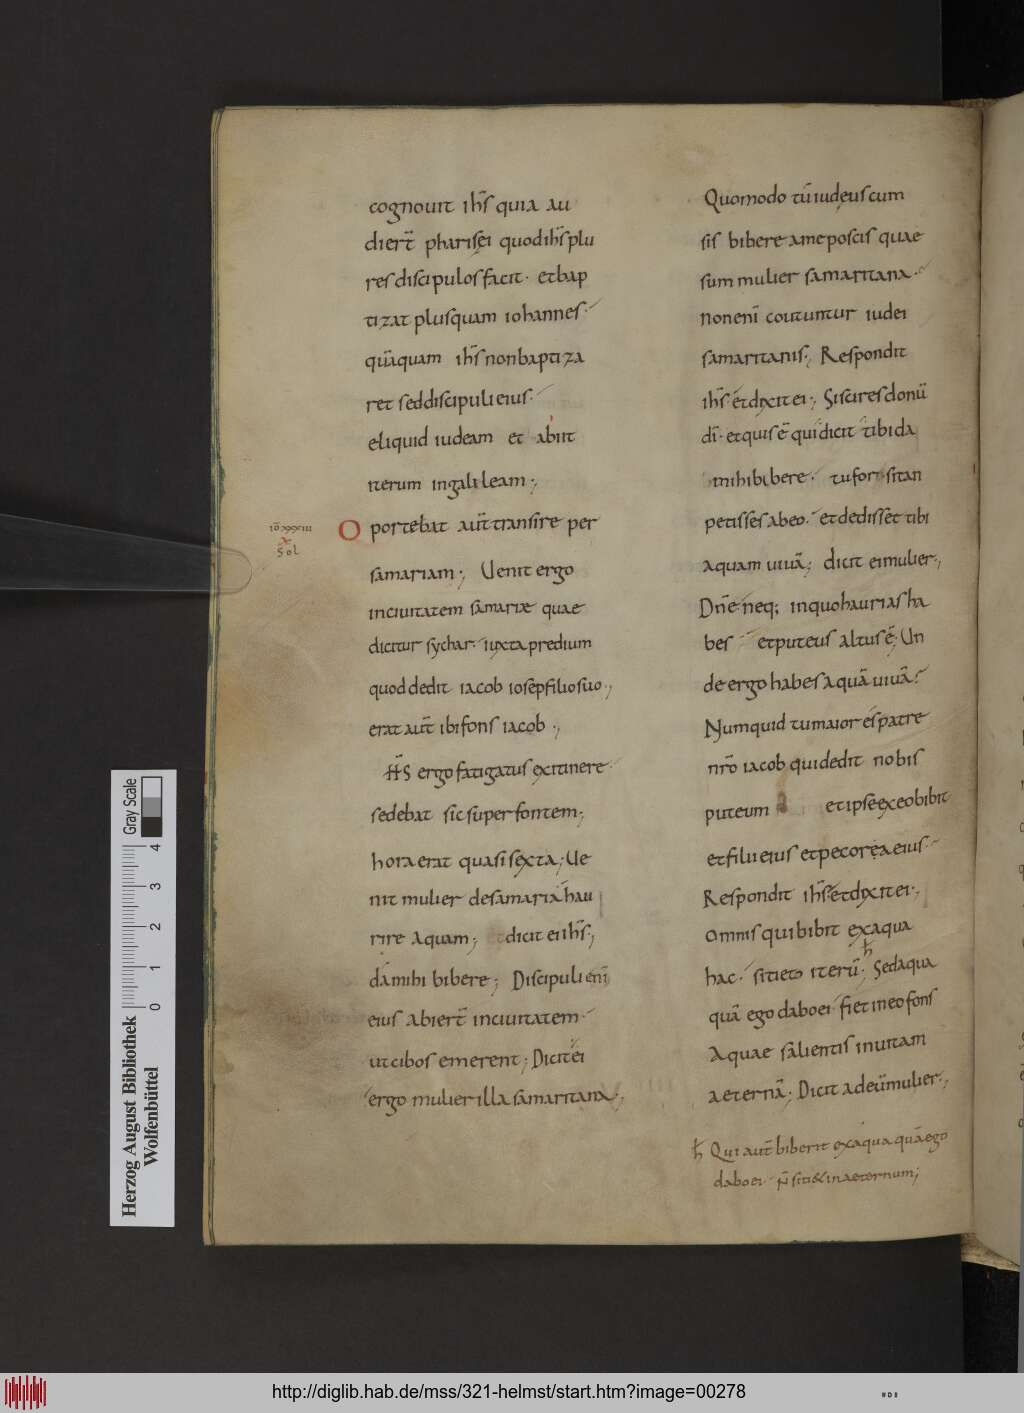 cognouit ih̄s quia au
diert̄ pharisęi quod ih̄s plu
res discipulos facit· et bap
tizat plusquam iohannes·
quāquam ih̄s non baptiza
ret sed discipuli eius·
reliquid iudeam et abiit
iterum in galileam;
iō xxxiii
x
Sol
Oportebat aut̄ transire per
samariam; Uenit ergo
in ciuitatem samariæ quae
dicitur sychar· iuxta predium
quod dedit iacob iosep filio suo;
erat aut̄ ibi fons iacob;
IH̄S ergo fatigatus ex itinere·
sedebat sic super fontem;
hora erat quasi sexta; Ue
nit mulier de samaria hau
rire aquam; dicit ei ih̄s;
da mihi bibere; Discipuli enī
eius abiert̄ in ciuitatem·
ut cibos emerent; Dicit ei
ergo mulier illa samaritana;
Quomodo tū iudęus cum
sis bibere a me poscis quae
sum mulier samaritana·
non enī coutuntur iudei
samaritanis; Respondit
ih̄s et dixit ei; Si scires donū
dī· et quis ē qui dicit tibi da
mihi bibere· tu forsitan
petisses ab eo· et dedisset tibi
aquam uiuā; dicit ei mulier;
Dn̄e neq; in quo haurias ha
bes et puteus altus ē; Un
de ergo habes aquā uiuā?
Numquid tu maior es patre
nr̄o iacob qui dedit nobis
puteum et ipse ex eo bibit
et filii eius et pecorea eius·
Respondit ih̄s et dixit ei;
omnis qui bibit ex aqua
hac· sitiet iterū; h̄ Sed aqua
quā ego dabo ei· fiet in eo fons
aquae salientis in uitam
aeternā; Dicit ad eū mulier;
h̄ Qui aut̄ biberit ex aqua quā ego
dabo ei· n̄ sitiet in aeternum;
Herzog August Bibliothek
Wolfenbüttel
0 1 2 3 4
Gray Scale
http://diglib.hab.de/mss/321-helmst/start.htm?image=00278